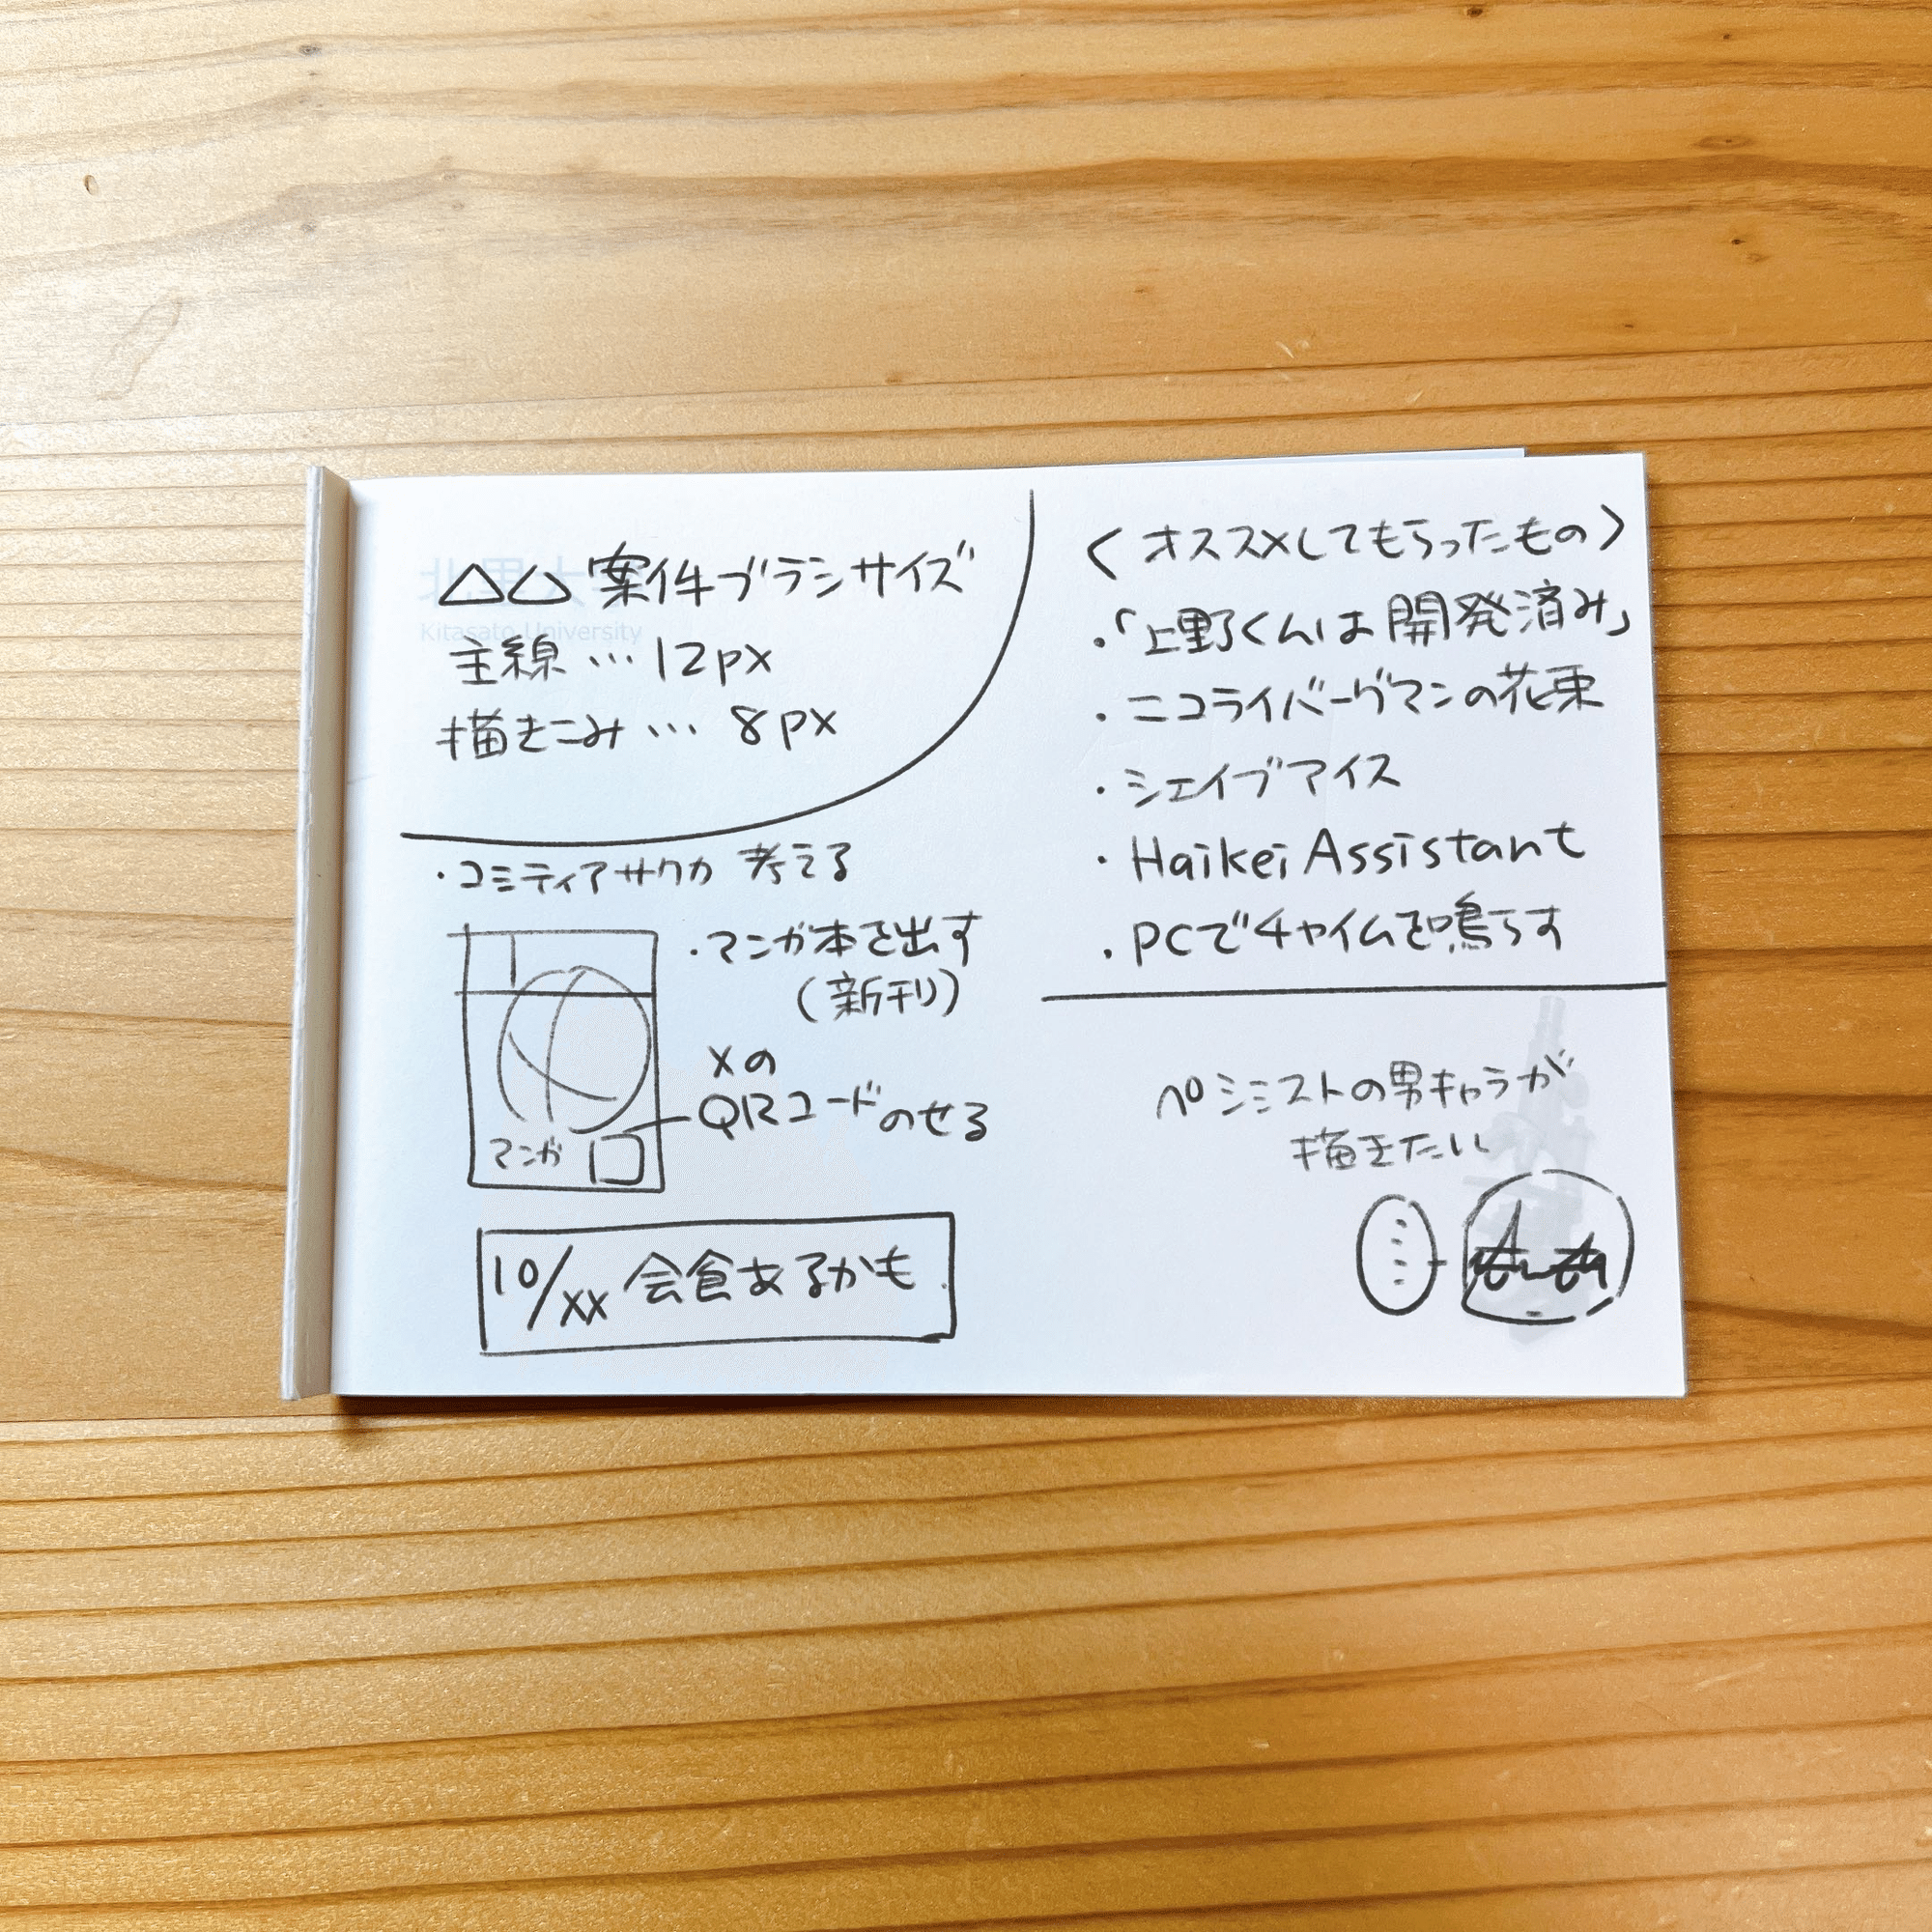 北里大学
Kitasato University
△△案件ブラシサイズ
主線…12px
描きこみ…8px
・コミティアサクカ 考える
・マンガ本を出す
(新刊)
Xの
QRコードのせる
マンガ
10/xx 会食あるかも
〈オススメしてもらったもの〉
・「上野くんは開発済み」
・ニコライバーグマンの花束
・シェイブアイス
・Haikei Assistant
・PCでチャイムを鳴らす
ペシミストの男キャラが
描きたい